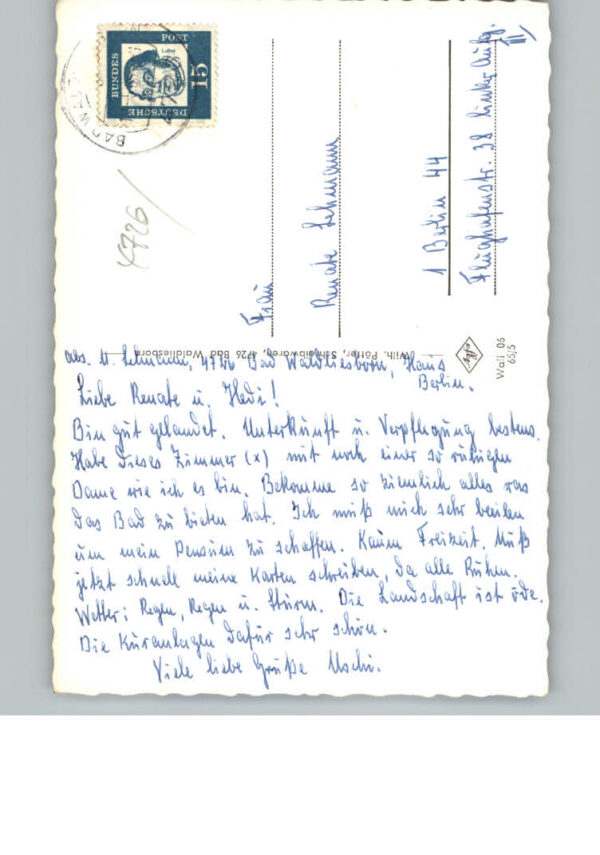 DEUTSCHE
BUNDES
POST
15
Luther
BAD WAL
4726/
Frau
Renate Lehmann
1 Berlin 44
Flughafenstr. 38 linker Aufg.
III
Wilh. Pötter, Schreibwaren, 4726 Bad Waldliesborn
Wali 06
65/5
Abs. U. Lehmann, 4726 Bad Waldliesborn, Haus
Berlin.
Liebe Renate u. Hedi!
Bin gut gelandet. Unterkunft u. Verpflegung bestens.
Habe dieses Zimmer (x) mit noch einer so ruhigen
Dame wie ich es bin. Bekomme so ziemlich alles was
das Bad zu bieten hat. Ich muß mich sehr beeilen
um mein Pensum zu schaffen. Kaum Freizeit. Muß
jetzt schnell meine Karten schreiben, da alle Ruhen.
Wetter: Regen, Regen u. Sturm. Die Landschaft ist öde.
Die Kuranlagen dafür sehr schön.
Viele liebe Grüße Uschi.